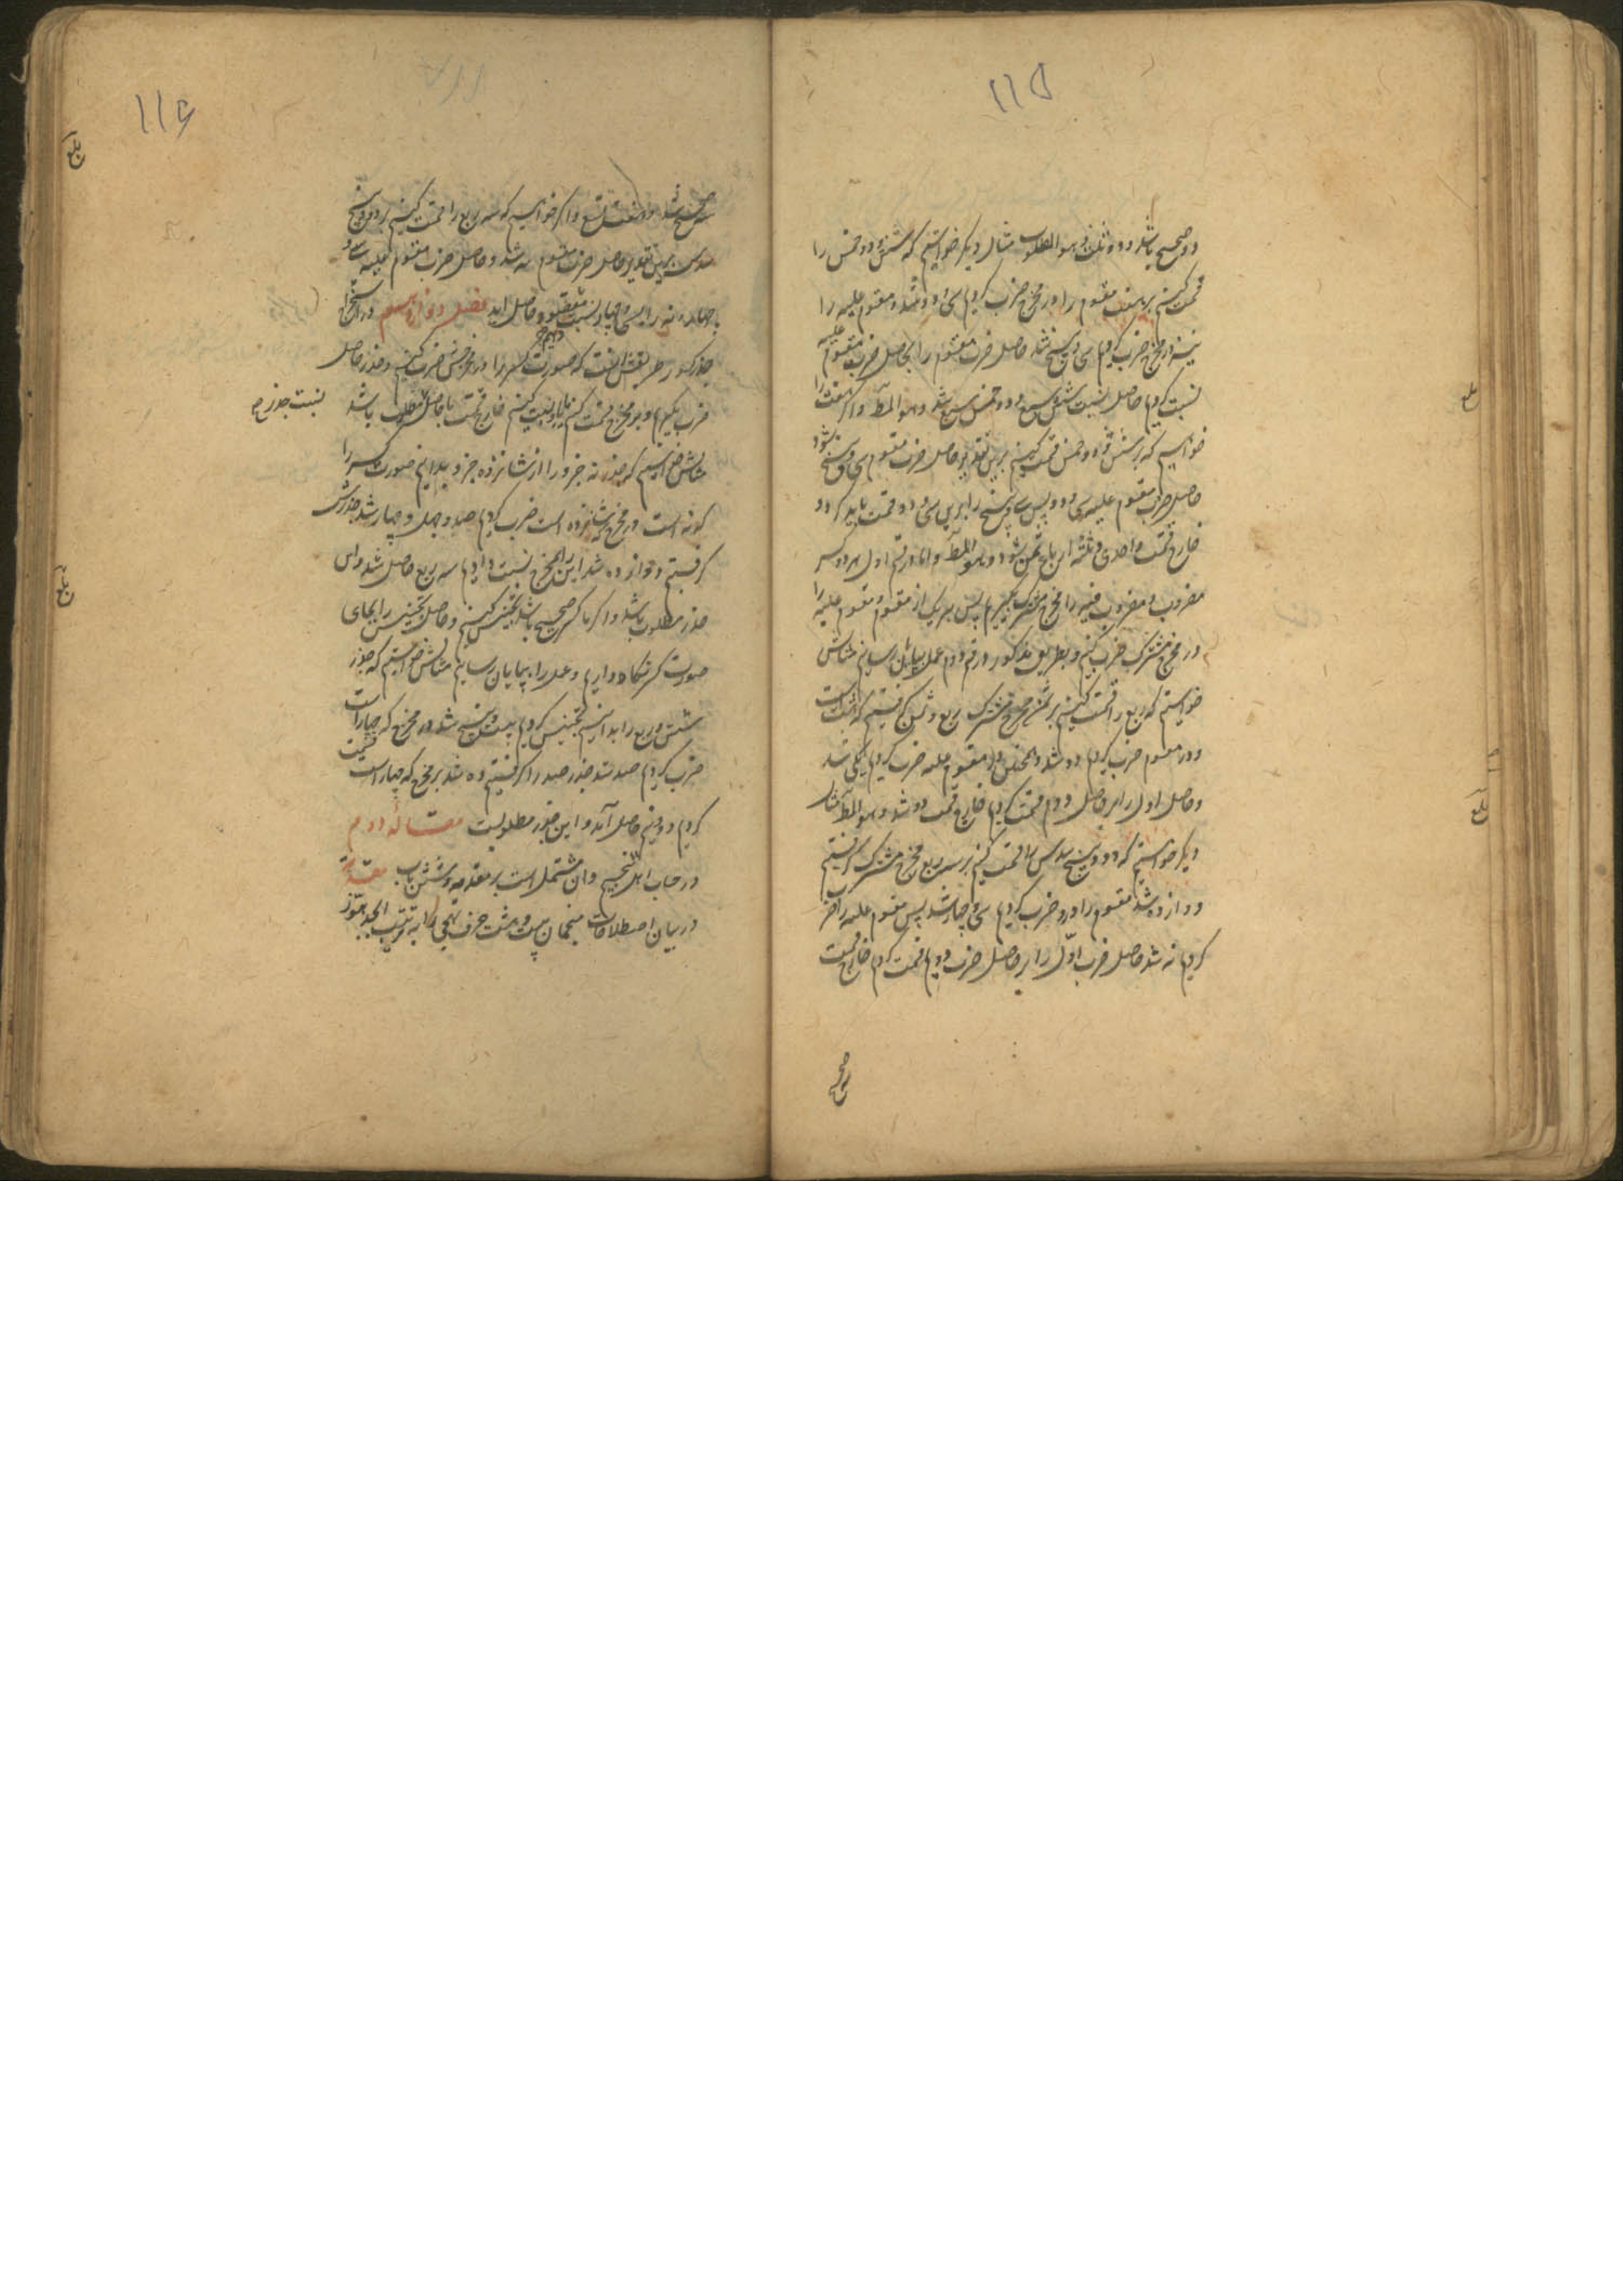 ۱۱۵
دو صحیح باشد و دو ثلث و هو المطلوب مثال دیگر خواستیم که شش و دو خمس را
قسمت کنیم بر هفت مقسوم را در مخرج ضرب کردیم سی و دو شد و مقسوم علیه را
نیز در مخرج ضرب کردیم سی و پنج شد حاصل ضرب مقسوم را بحاصل ضرب مقسوم علیه
نسبت کردیم حاصل نسبت شش سبع و دو خمس سبع شد و هو المط و اگر هفت را
خواستیم که بر شش و دو خمس قسمت کنیم برین تقدیر حاصل ضرب مقسوم سی و پنج شود
حاصل ضرب مقسوم علیه سی و دو پس سی و پنج را بر سی و دو قسمت باید کرد و
خارج قسمت واحدی و ثلثه ارباع ثمن شود و هو المط و اما در قسم اول هر دو کسر
مضروب و مضروب فیه را مخرج مشترک بگیریم پس هر یک از مقسوم و مقسوم علیه را
در مخرج مشترک ضرب کنیم و بطریق مذکور در قسم دوم عمل بپایان رسانیم مثالش
خواستیم که ربع را قسمت کنیم بر ثمن مخرج مشترک ربع و ثمن گرفتیم که هشت است
و در مقسوم ضرب کردیم دو شد و همچنین در مقسوم علیه ضرب کردیم یکی شد
و حاصل اول را بر حاصل دوم قسمت کردیم خارج قسمت دو شد و هو المط مثال
دیگر خواستیم که دو و پنج سدس را قسمت کنیم بر سه ربع مخرج مشترک گرفتیم
دوازده شد مقسوم را در و ضرب کردیم سی و چهار شد پس مقسوم علیه را ضرب
کردیم نه شد حاصل ضرب اول را بر حاصل ضرب دویم قسمت کردیم خارج قسمت
سه صحیح
۱۱۶
بلغ
سه صحیح شد و هفت تسع و اگر خواستیم که سه ربع را قسمت کنیم بر دو و پنج
سدس برین تقدیر حاصل ضرب مقسوم نه شد و حاصل ضرب مقسوم علیه سی و
چهار و نه را بسی و چهار نسبت حاصل آید فصل دوازدهم در استخراج
جذر کسور طریقش آنست که صورت کسر را در مخرجش ضرب کنیم و جذر حاصل
ضرب بگیریم و بر مخرج قسمت کنیم یا باو نسبت کنیم خارج قسمت یا حاصل نسبت جذر مطلوب باشد
مثالش خواستیم که جذر نه جزو را از شانزده جزو بدانیم صورت کسر را
که نه است در مخرج که شانزده است ضرب کردیم صد و چهل و چهار شد جذرش
گرفتیم دوازده شد این را بمخرج نسبت دادیم سه ربع حاصل شد و این
جذر مطلوب باشد و اگر با کسر صحیح باشد تجنیس کنیم و حاصل تجنیس را بجای
صورت کسر نگاه داریم و عمل را بپایان رسانیم مثالش خواستیم که جذر
شش و ربع را بدانیم تجنیس کردیم بیست و پنج شد در مخرج که چهار است
ضرب کردیم صد شد جذر صد را گرفتیم ده شد بر مخرج که چهار است قسمت
کردیم دو و نیم حاصل آمد و این جذر مطلوبست مقاله دوم
در حساب اهل تنجیم و آن مشتمل است بر مقدمه و شش باب مقدمه
در بیان اصطلاحات منجمان بیست و هشت حرف تهجی را به ترتیب ابجد هوز